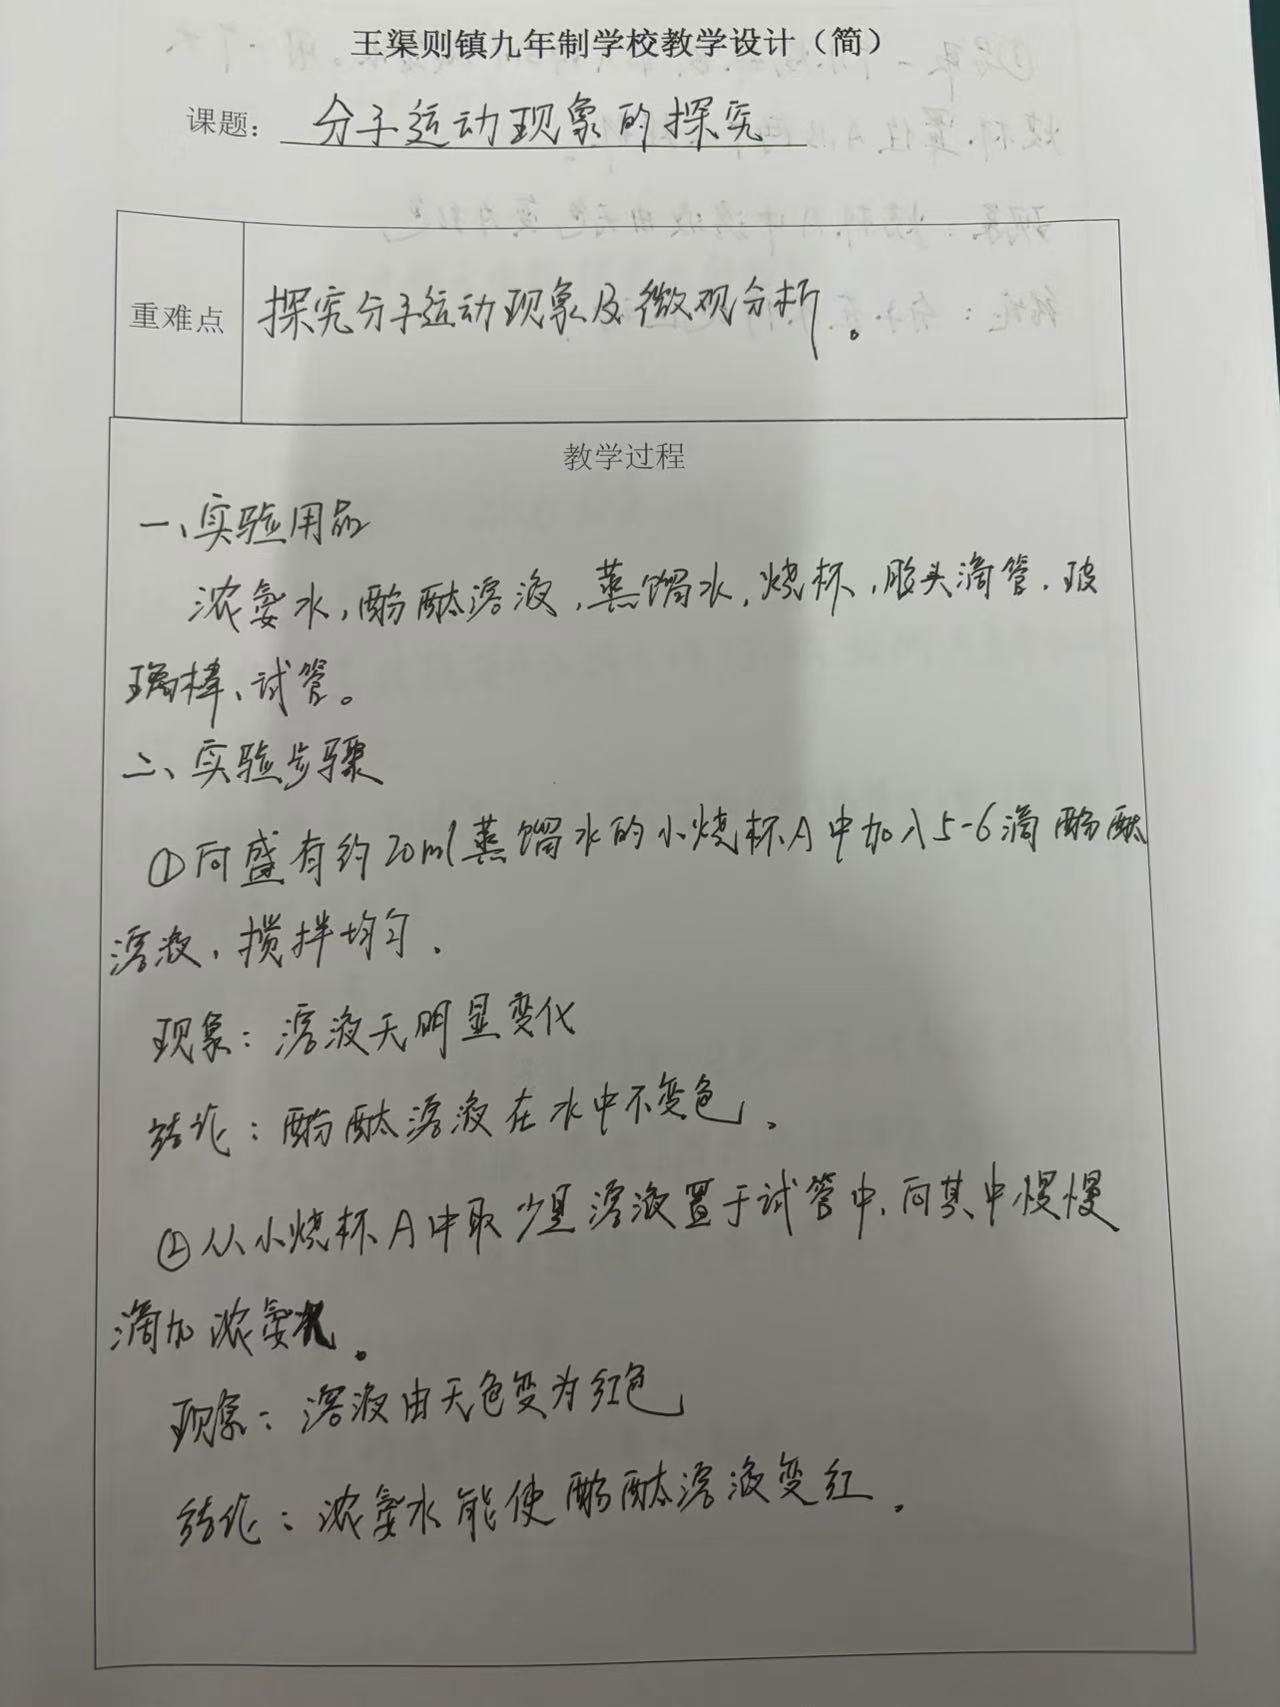 王渠则镇九年制学校教学设计（简）
课题：分子运动现象的探究
重难点
探究分子运动现象及微观分析。
教学过程
一、实验用品
浓氨水,酚酞溶液,蒸馏水,烧杯,胶头滴管、玻
璃棒、试管。
二、实验步骤
①向盛有约20ml蒸馏水的小烧杯A中加入5-6滴酚酞
溶液,搅拌均匀.
现象：溶液无明显变化
结论：酚酞溶液在水中不变色。
②从小烧杯A中取少量溶液置于试管中,向其中慢慢
滴加浓氨水。
现象：溶液由无色变为红色
结论：浓氨水能使酚酞溶液变红。